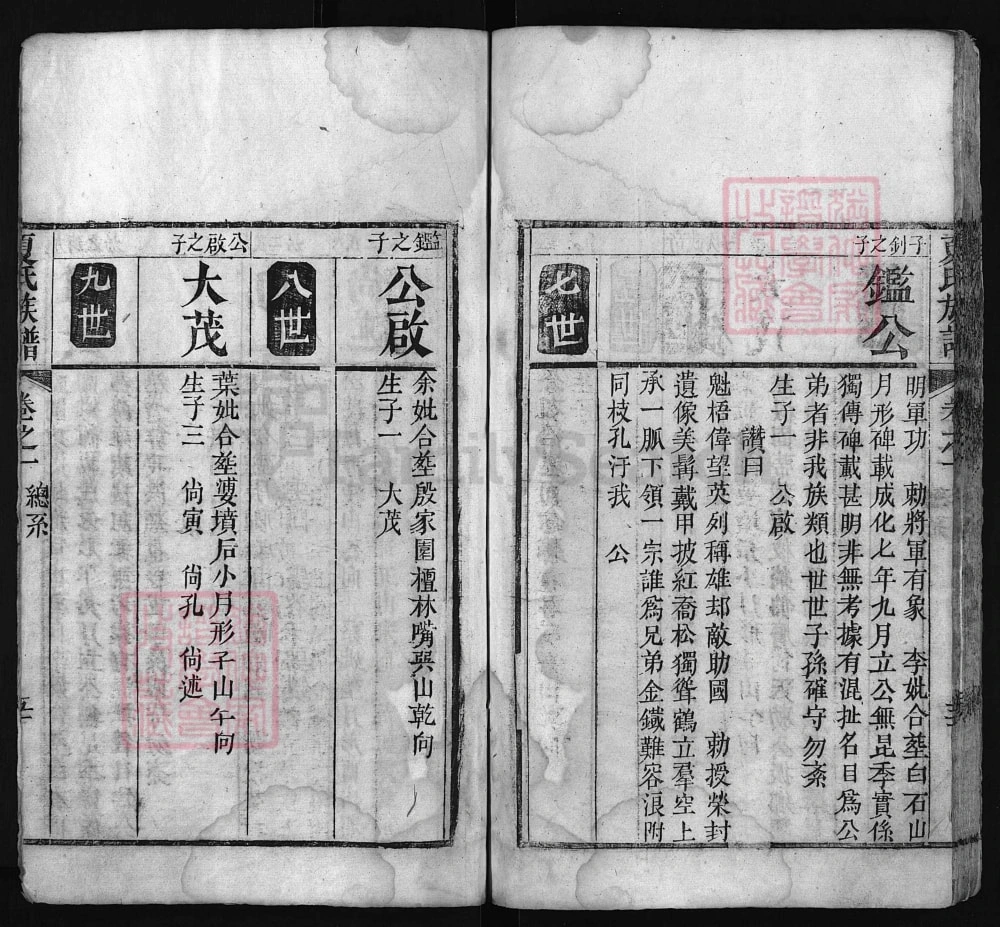 子釗之子
鑑公
明軍功 勅將軍有象 李妣合塟白石山
月形碑載成化七年九月立公無昆季實係
獨傳碑載甚明非無考據有混扯名目爲公
弟者非我族類也世世子孫確守勿紊
生子一 公啟
讚曰
魁梧偉望英列稱雄刧敵助國 勅授榮封
遺像美髯戴甲披紅喬松獨聳鶴立羣空上
承一脈下領一宗誰爲兄弟金鐵難容浪附
同枝孔汙我 公
七世
鑑之子
公啟
余妣合塟殷家園檀林嘴巽山乾向
生子一 大茂
八世
公啟之子
大茂
葉妣合塟婆墳后小月形子山午向
生子三 尙寅 尙孔 尙述
九世
夏氏族譜 卷之一 總系